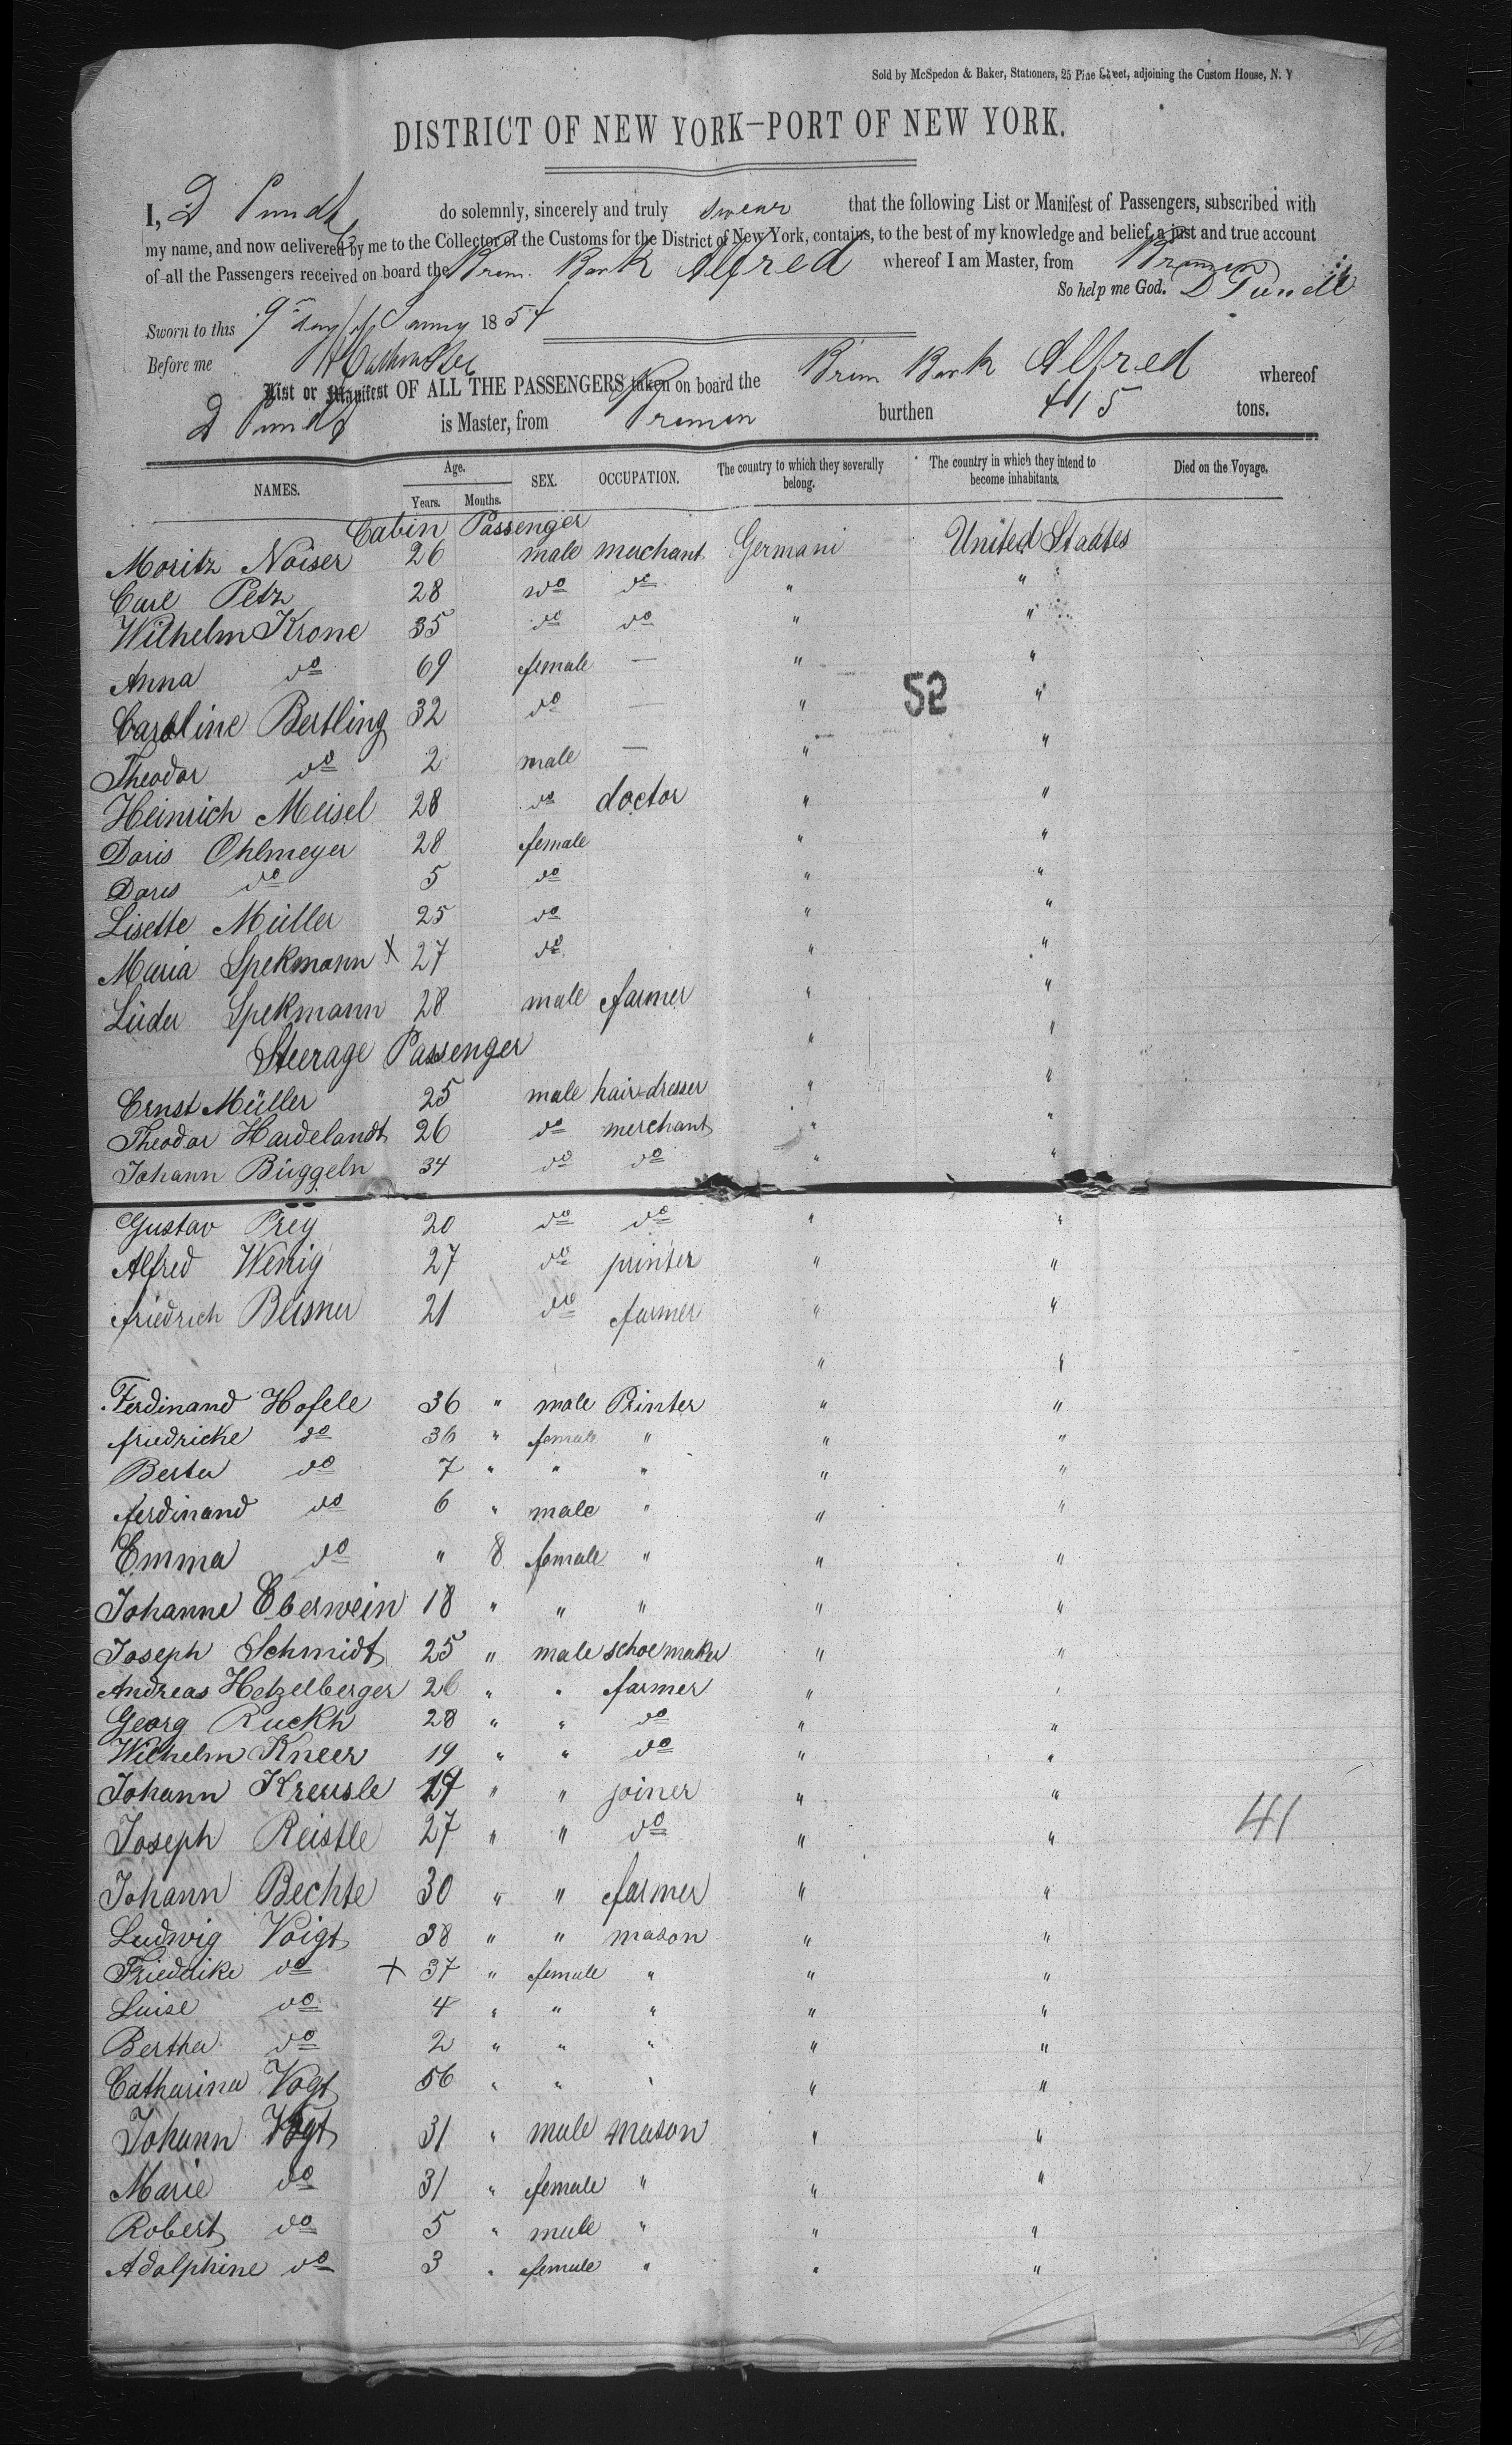 Sold by McSpedon & Baker, Stationers, 25 Pine Street, adjoining the Custom House, N. Y
DISTRICT OF NEW YORK—PORT OF NEW YORK.
I, D Pundt do solemnly, sincerely and truly swear that the following List or Manifest of Passengers, subscribed with
my name, and now delivered by me to the Collector of the Customs for the District of New York, contains, to the best of my knowledge and belief, a just and true account
of all the Passengers received on board the Brem. Bark Alfred whereof I am Master, from Bremen
So help me God. D Pundt
Sworn to this 9th day of Janry 1854
Before me
List or Manifest OF ALL THE PASSENGERS taken on board the Brem Bark Alfred whereof
D Pundt is Master, from Bremen burthen 415 tons.
NAMES. Age. Years. Months. SEX. OCCUPATION. The country to which they severally belong. The country in which they intend to become inhabitants. Died on the Voyage.
Cabin Passenger
Moritz Noiser 26 male merchant Germani United Staates
Carl Petz 28 do do " "
Wilhelm Krone 35 do do " "
Anna do 69 female — " "
52
Caroline Bertling 32 do — " "
Theodor do 2 male — " "
Heinrich Meisel 28 do doctor " "
Doris Ohlmeyer 28 female " "
Doris do 5 do " "
Lisette Müller 25 do " "
Maria Spekmann x 27 do " "
Lüder Spekmann 28 male farmer " "
Steerage Passenger " "
Ernst Müller 25 male hair-dresser " "
Theodor Hardelandt 26 do merchant " "
Johann Büggeln 34 do do " "
Gustav Prey 20 do do " "
Alfred Wenig 27 do printer " "
friedrich Beisner 21 do farmer " "
" "
Ferdinand Hofele 36 " male Printer " "
friedricke do 36 " female " " "
Berta do 7 " " " " "
ferdinand do 6 " male " " "
Emma do " 8 female " " "
Johanne Eberwein 18 " " " " "
Joseph Schmidt 25 " male schoemaker " "
Andreas Hetzelberger 26 " " farmer " "
Georg Ruckh 28 " " do " "
Wilhelm Kneer 19 " " do " "
Johann Kreusle " " joiner " "
41
Joseph Reistle 27 " " do " "
Johann Bechte 30 " " farmer " "
Ludwig Voigt 38 " " mason " "
Friedrike do x 37 " female " " "
Luise do 4 " " " " "
Bertha do 2 " " " " "
Catharina Vogt 56 " " " " "
Johann Vogt 31 " male mason " "
Marie do 31 " female " " "
Robert do 5 " male " " "
Adolphine do 3 " female " " "